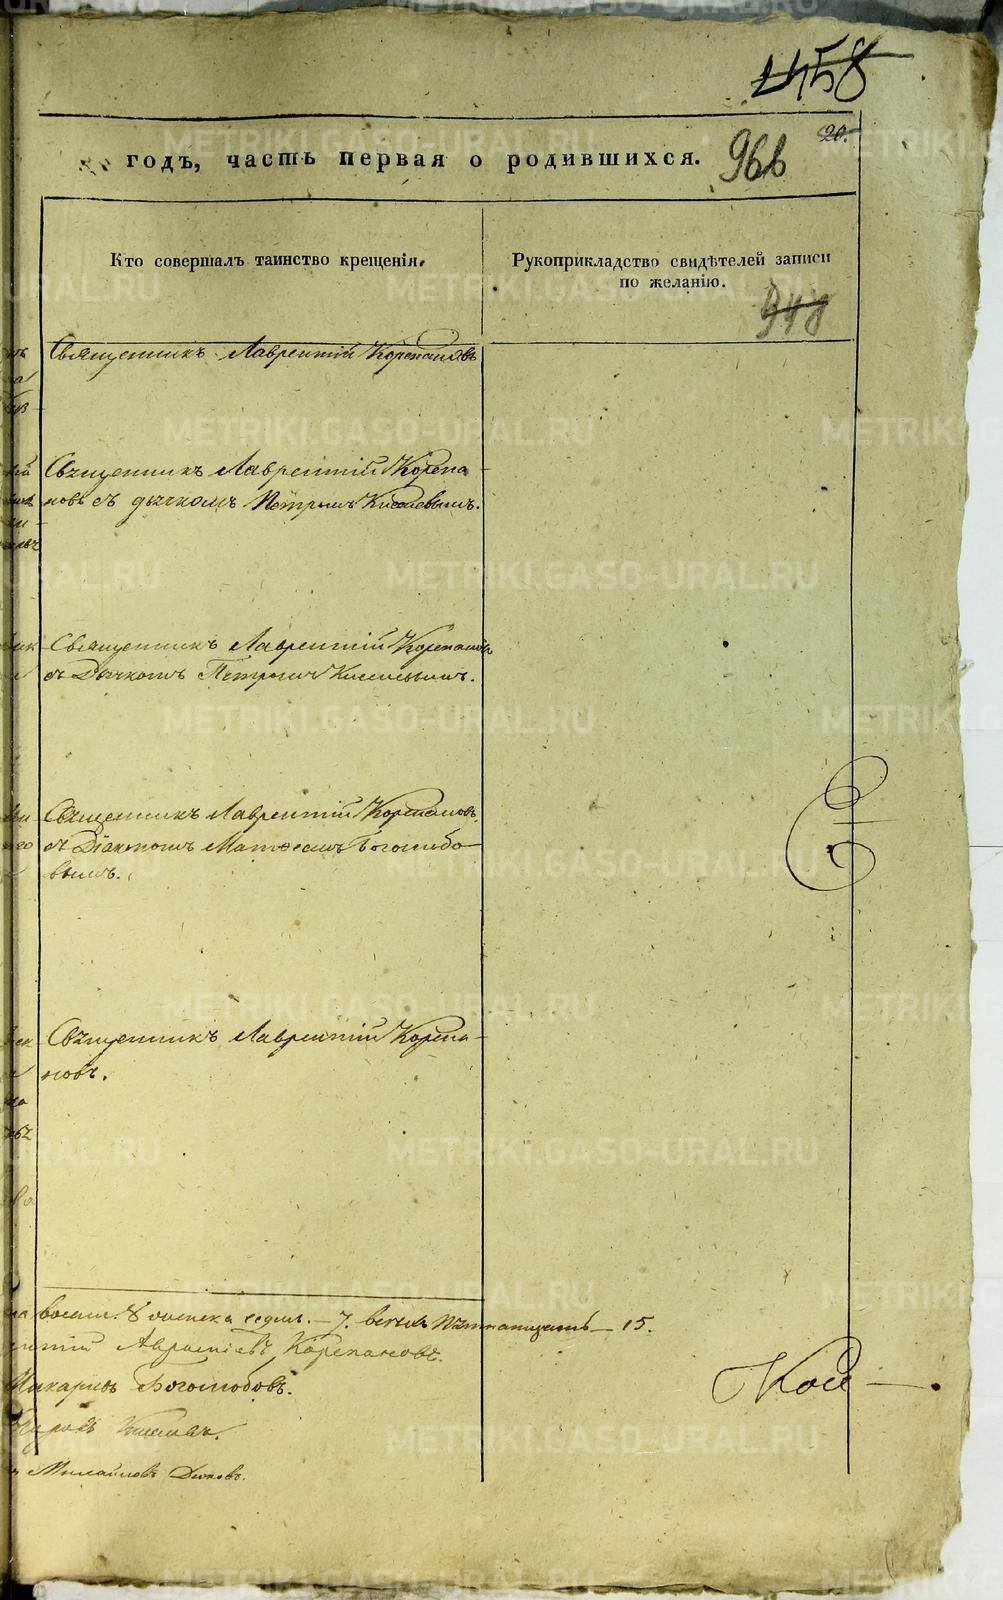 1458
годъ, часть первая о родившихся.
966
20.
Кто совершалъ таинство крещенія.
Рукоприкладство свидѣтелей записи
по желанію.
948
Священникъ Лаврентій Корепановъ
Священникъ Лаврентій Корепа-
новъ съ дьячкомъ Петромъ Киселевымъ.
Священникъ Лаврентій Корепановъ
съ Дьячкомъ Петромъ Киселевымъ.
Священникъ Лаврентій Корепановъ
съ Діакономъ Матѳеемъ Боголюбо-
вымъ.
Священникъ Лаврентій Корепа-
новъ.
восемь. 8 женска седмь. — 7. всѣхъ пятнатцать — 15.
Корепановъ.
Макаровъ Боголюбовъ.
Киселевъ.
Михайловъ
METRIKI.GASO-URAL.RU